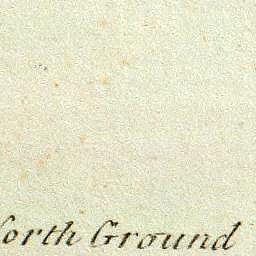 North Ground